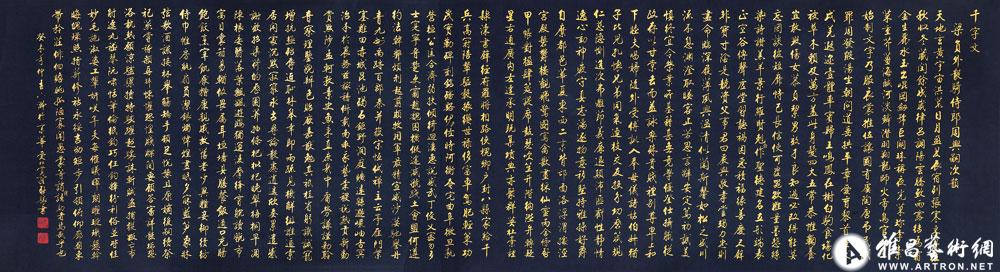 千字文
梁員外散騎侍郎周興嗣次韻
天地玄黃宇宙洪荒日月盈昃辰宿列張寒
來暑往秋收冬藏閏餘成歲律呂調陽雲騰致雨露結為霜
金生麗水玉出崑岡劍號巨闕珠稱夜光果珍李
柰菜重芥薑海鹹河淡鱗潛羽翔龍師火帝鳥官人皇
始制文字乃服衣裳推位讓國有虞陶唐弔民伐
罪周發殷湯坐朝問道垂拱平章愛育黎首臣伏
戎羌遐邇壹體率賓歸王鳴鳳在樹白駒食場化
被草木賴及萬方蓋此身髮四大五常恭惟鞠養
豈敢毀傷女慕貞絜男效才良知過必改得能莫
忘罔談彼短靡恃己長信使可覆器欲難量墨悲絲
染詩讚羔羊景行維賢剋念作聖德建名立形端表
正空谷傳聲虛堂習聽禍因惡積福緣善慶尺璧
非寶寸陰是競資父事君曰嚴與敬孝當竭力忠則
盡命臨深履薄夙興溫凊似蘭斯馨如松之盛川
流不息淵澄取映容止若思言辭安定篤初誠美
慎終宜令榮業所基籍甚無竟學優登仕攝職從
政存以甘棠去而益詠樂殊貴賤禮別尊卑上和
下睦夫唱婦隨外受傅訓入奉母儀諸姑伯叔猶
子比兒孔懷兄弟同氣連枝交友投分切磨箴規
仁慈隱惻造次弗離節義廉退顛沛匪虧性靜情
逸心動神疲守真志滿逐物意移堅持雅操好爵
自縻都邑華夏東西二京背邙面洛浮渭據涇
宮殿盤鬱樓觀飛驚圖寫禽獸畫彩仙靈丙舍傍啟
甲帳對楹肆筵設席鼓瑟吹笙升階納陛弁轉疑
星右通廣內左達承明既集墳典亦聚群英杜稿鍾
隸漆書壁經府羅將相路俠槐卿戶封八縣家給千
兵高冠陪輦驅轂振纓世祿侈富車駕肥輕策功
茂實勒碑刻銘磻溪伊尹佐時阿衡奄宅曲阜微旦孰
營桓公匡合濟弱扶傾綺迴漢惠說感武丁俊乂密勿多
士寔寧晉楚更霸趙魏困橫假途滅虢踐土會盟何遵
約法韓弊煩刑起翦頗牧用軍最精宣威沙漠馳譽丹
青九州禹跡百郡秦并嶽宗恆岱禪主云亭雁門紫
塞雞田赤城昆池碣石鉅野洞庭曠遠綿邈巖岫杳冥
治本於農務茲稼穡俶載南畝我藝黍稷稅熟貢新勸
賞黜陟孟軻敦素史魚秉直庶幾中庸勞謙謹敕聆
音察理鑑貌辨色貽厥嘉猷勉其祗植省躬譏誡寵
增抗極殆辱近恥林皋幸即兩疏見機解組誰逼索
居閒處沉默寂寥求古尋論散慮逍遙欣奏累遣慼謝
歡招渠荷的歷園莽抽條枇杷晚翠梧桐早凋陳
根委翳落葉飄颻遊鵾獨運凌摩絳霄耽讀翫市
寓目囊箱易輶攸畏屬耳垣牆具膳餐飯適口充腸
飽飫烹宰飢厭糟糠親戚故舊老少異糧妾御績紡
侍巾帷房紈扇圓潔銀燭煒煌晝眠夕寐藍筍象床
弦歌酒讌接杯舉觴矯手頓足悅豫且康嫡後嗣續祭
祀烝嘗稽顙再拜悚懼恐惶牋牒簡要顧答審詳骸垢想
浴執熱願涼驢騾犢特駭躍超驤誅斬賊盜捕獲叛亡布
射遼丸嵇琴阮嘯恬筆倫紙鈞巧任釣釋紛利俗並皆佳
妙毛施淑姿工顰妍笑年矢每催曦暉朗曜璇璣懸斡
晦魄環照指薪修祜永綏吉劭矩步引領俯仰廊廟束
帶矜莊徘徊瞻眺孤陋寡聞愚蒙等誚謂語助者焉哉乎也
癸未
雅昌藝術網
WWW.ARTRON.NET